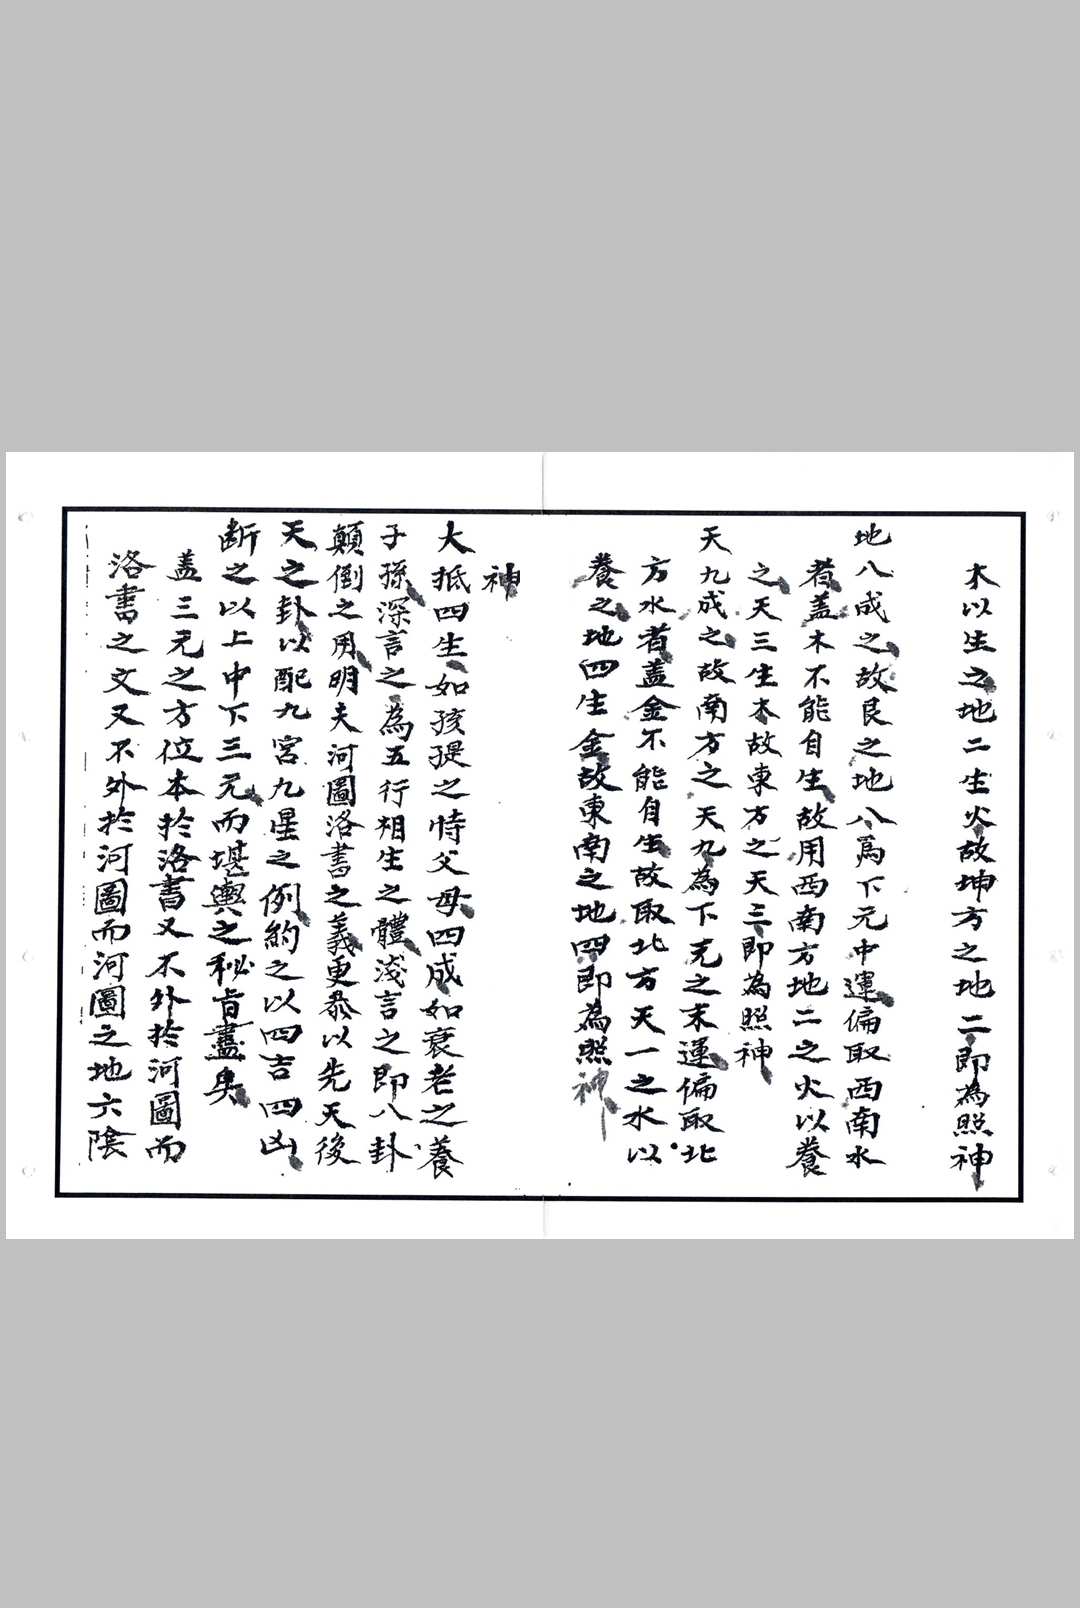 木以生之地二生火故坤方之地二即為照神
地八成之故艮之地八爲下元中運偏取西南水
者盖木不能自生故用西南方地二之火以養
之天三生木故東方之天三即為照神
天九成之故南方之天九為下元之末運偏取北
方水者盖金不能自生故取北方天一之水以
養之地四生金故東南之地四即為照神
神
大抵四生如孩提之恃父母四成如衰老之養
子孫深言之為五行相生之體淺言之即八卦
顛倒之用明夫河圖洛書之義更叅以先天後
天之卦以配九宮九星之例約之以四吉四凶
断之以上中下三元而堪輿之秘旨盡矣
盖三元之方位本扵洛書又不外扵河圖而
洛書之文又不外扵河圖而河圖之地六陰